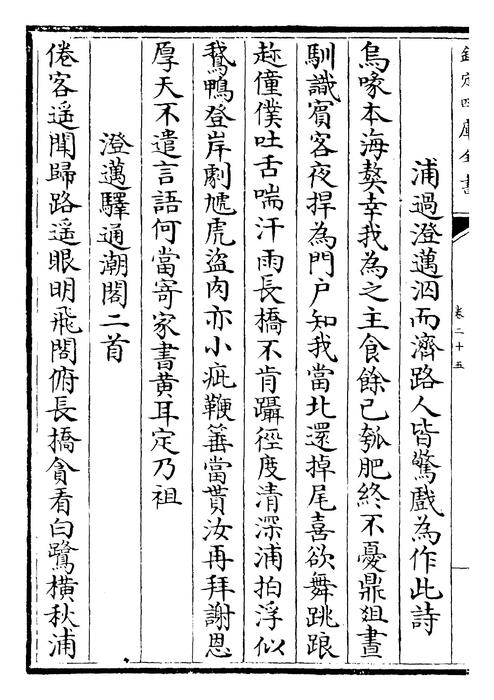 欽定四庫全書
卷二十五
浦過澄邁泅而濟路人皆驚戲為作此詩
烏喙本海獒幸我為之主食餘已瓠肥終不憂鼎俎晝
馴識賓客夜捍為門户知我當北還掉尾喜欲舞跳踉
趁僮僕吐舌喘汗雨長橋不肯躡徑度清深浦拍浮似
鵝鴨登岸劇虓虎盜肉亦小疵鞭箠當貰汝再拜謝恩
厚天不遣言語何當寄家書黄耳定乃祖
澄邁驛通潮閣二首
倦客遥聞歸路遥眼明飛閣俯長橋貪看白鷺横秋浦